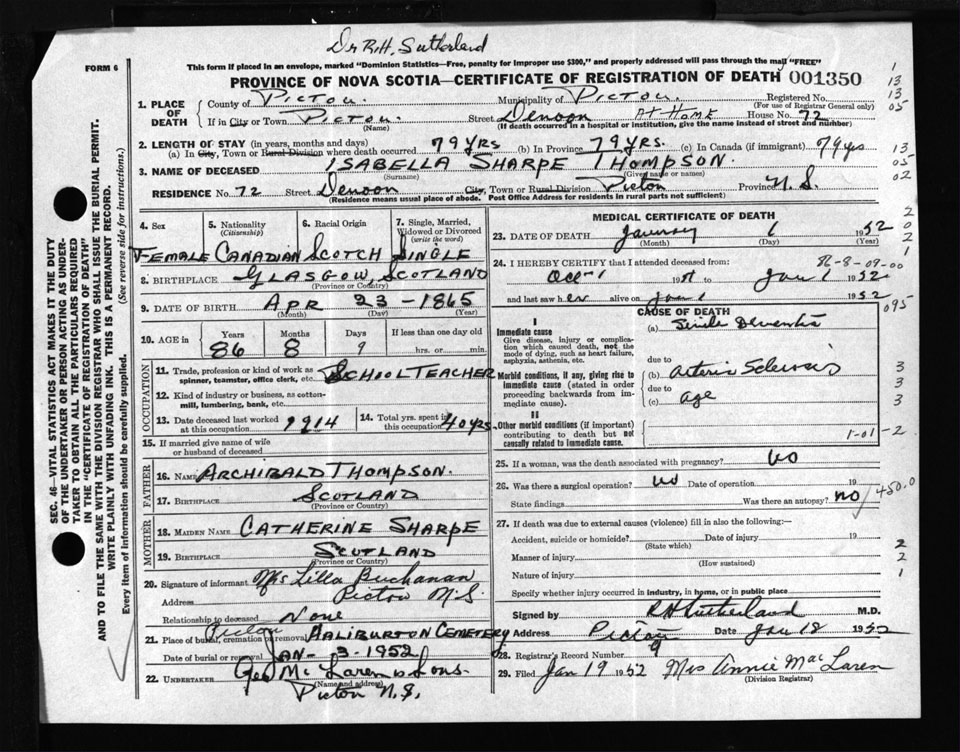 Dr R.H. Sutherland
FORM 6
This form if placed in an envelope, marked "Dominion Statistics—Free, penalty for improper use $300," and properly addressed will pass through the mail "FREE"
PROVINCE OF NOVA SCOTIA—CERTIFICATE OF REGISTRATION OF DEATH 001350
1. PLACE OF DEATH
County of Pictou. Municipality of Pictou. Registered No.
(For use of Registrar General only)
If in City or Town Pictou. Street Denoon At Home House No. 72
(Name) (If death occurred in a hospital or institution, give the name instead of street and number)
2. LENGTH OF STAY (in years, months and days)
(a) In City, Town or Rural Division where death occurred 79 yrs (b) In Province 79 yrs. (c) In Canada (if immigrant) 79 yrs
3. NAME OF DECEASED ISABELLA SHARPE THOMPSON.
(Surname) (Given name or names)
RESIDENCE No. 72 Street Denoon City, Town or Rural Division Pictou Province N.S.
(Residence means usual place of abode. Post Office Address for residents in rural parts not sufficient)
4. Sex 5. Nationality (Citizenship) 6. Racial Origin 7. Single, Married, Widowed or Divorced (write the word)
FEMALE CANADIAN SCOTCH SINGLE
8. BIRTHPLACE GLASGOW, SCOTLAND
(Province or Country)
9. DATE OF BIRTH APR 23 - 1865
(Month) (Day) (Year)
10. AGE in Years Months Days If less than one day old
86 8 9 hrs. or min.
OCCUPATION
11. Trade, profession or kind of work as spinner, teamster, office clerk, etc. SCHOOL TEACHER
12. Kind of industry or business, as cotton-mill, lumbering, bank, etc.
13. Date deceased last worked at this occupation 1914 14. Total yrs. spent in this occupation 40 yrs
15. If married give name of wife or husband of deceased
FATHER
16. NAME ARCHIBALD THOMPSON.
17. BIRTHPLACE SCOTLAND
(Province or Country)
MOTHER
18. MAIDEN NAME CATHERINE SHARPE
19. BIRTHPLACE SCOTLAND
(Province or Country)
20. Signature of informant Mrs Lilla Buchanan
Address Pictou N.S.
Relationship to deceased None
21. Place of burial, cremation or removal Pictou HALIBURTON CEMETERY
Date of burial or removal JAN - 3 - 1952
22. UNDERTAKER Geo McLaren & Sons.
(Name and address)
Pictou N.S.
MEDICAL CERTIFICATE OF DEATH
23. DATE OF DEATH January 1 1952
(Month) (Day) (Year)
24. I HEREBY CERTIFY that I attended deceased from:
Oct 1 1951 to Jan 1 1952
and last saw her alive on Jan 1 1952
CAUSE OF DEATH
I
Immediate cause
Give disease, injury or complication which caused death, not the mode of dying, such as heart failure, asphyxia, asthenia, etc.
(a) Senile Dementia
due to
Morbid conditions, if any, giving rise to immediate cause (stated in order proceeding backwards from immediate cause).
(b) Arterio Sclerosis
due to
(c) age
II
Other morbid conditions (if important) contributing to death but not causally related to immediate cause.
25. If a woman, was the death associated with pregnancy? No
26. Was there a surgical operation? No Date of operation 19
State findings Was there an autopsy? NO
27. If death was due to external causes (violence) fill in also the following:—
Accident, suicide or homicide? Date of injury 19
(State which)
Manner of injury
(How sustained)
Nature of injury
Specify whether injury occurred in industry, in home, or in public place
Signed by R H Sutherland M.D.
Address Pictou Date Jan 18 1952
28. Registrar's Record Number 9
29. Filed Jan 19 1952 Mrs Annie MacLaren
(Division Registrar)
SEC. 46—VITAL STATISTICS ACT MAKES IT THE DUTY
OF THE UNDERTAKER OR PERSON ACTING AS UNDERTAKER TO OBTAIN ALL THE PARTICULARS REQUIRED
IN THE "CERTIFICATE OF REGISTRATION OF DEATH"
AND TO FILE THE SAME WITH THE DIVISION REGISTRAR WHO SHALL ISSUE THE BURIAL PERMIT.
WRITE PLAINLY WITH UNFADING INK. THIS IS A PERMANENT RECORD.
Every item of information should be carefully supplied. (See reverse side for instructions.)
1
13
13
05
13
05
02
2
0
2
1
095
3
3
3
1-01-2
450.0
2
2
1